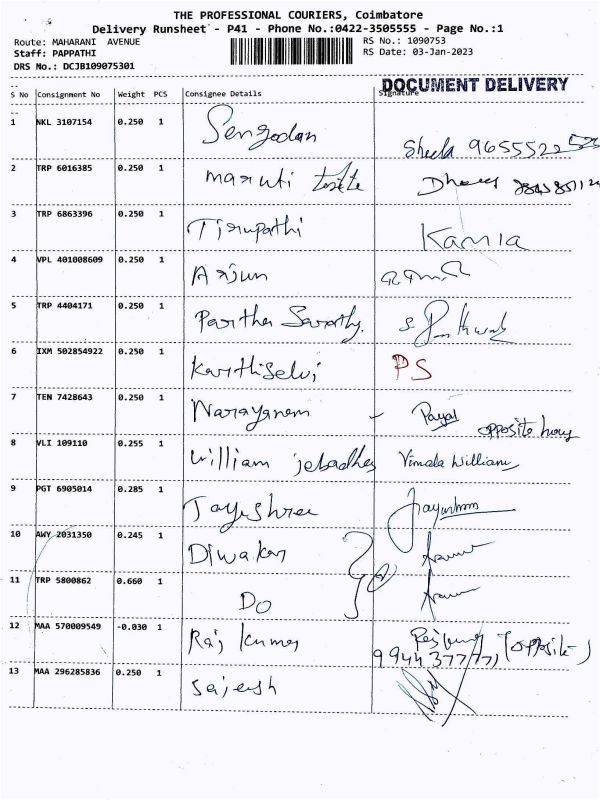 THE PROFESSIONAL COURIERS, Coimbatore
Delivery Runsheet - P41 - Phone No.:0422-3505555 - Page No.:1
Route: MAHARANI AVENUE RS No.: 1090753
Staff: PAPPATHI RS Date: 03-Jan-2023
DRS No.: DCJB109075301
DOCUMENT DELIVERY
S No Consignment No Weight PCS Consignee Details Signature
1 NKL 3107154 0.250 1 Sengodan Sheela
2 TRP 6016385 0.250 1 Maruti
3 TRP 6863396 0.250 1 Tirupathi Kamla
4 VPL 401008609 0.250 1 Arjun
5 TRP 4404171 0.250 1 Partha Sarathy
6 IXM 502854922 0.250 1 Karthiselvi PS
7 TEN 7428643 0.250 1 Narayanan Payal opposite
8 VLI 109110 0.255 1 William Vimala William
9 PGT 6905014 0.285 1 Jayashree
10 AWY 2031350 0.245 1 Diwakar
11 TRP 5800862 0.660 1 Do
12 MAA 570009549 -0.030 1 Raj Kumar (opposite)
13 MAA 296285836 0.250 1 Sajeesh